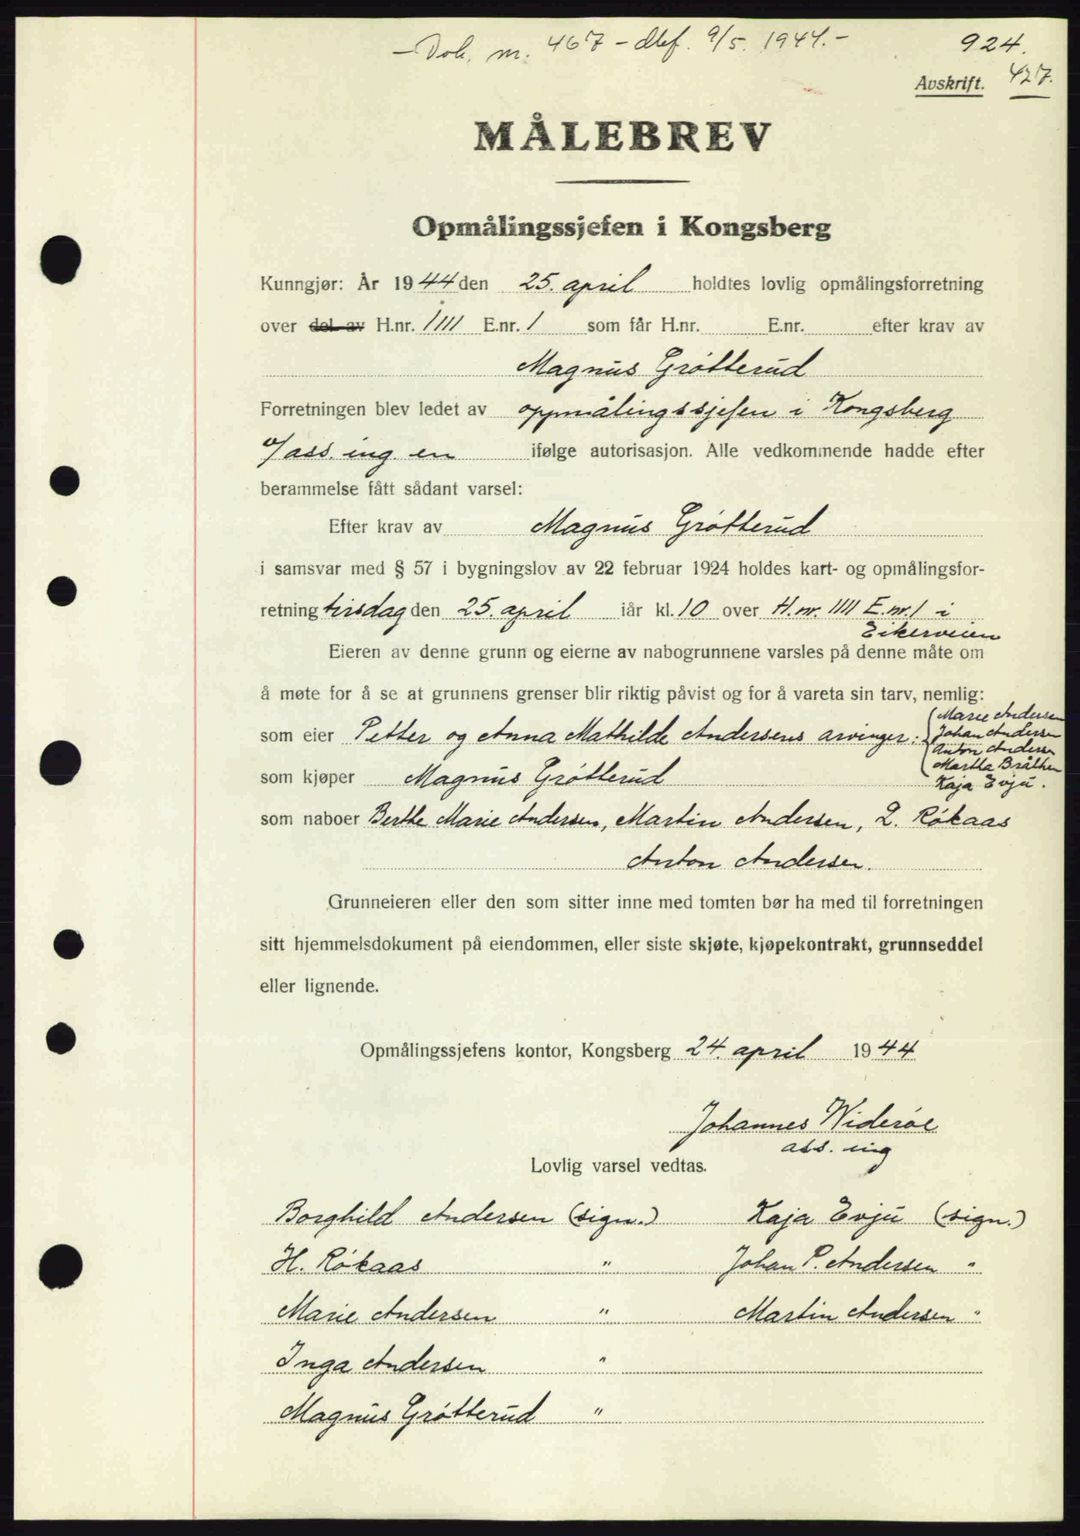 – Dok. nr. 467 – dbf. 9/5. 1944. –
924.
427.
Avskrift.
MÅLEBREV
Opmålingssjefen i Kongsberg
Kunngjør: År 1944 den 25. april holdtes lovlig opmålingsforretning
over del av H.nr. 1111 E.nr. 1 som får H.nr. E.nr. efter krav av
Magnus Grötterud
Forretningen blev ledet av oppmålingssjefen i Kongsberg
v/ass. ing. en ifølge autorisasjon. Alle vedkommende hadde efter
berammelse fått sådant varsel:
Efter krav av Magnus Grötterud
i samsvar med § 57 i bygningslov av 22 februar 1924 holdes kart- og opmålingsfor-
retning tirsdag den 25. april iår kl. 10 over H.nr. 1111 E.nr. 1 i
Eikerveien
Eieren av denne grunn og eierne av nabogrunnene varsles på denne måte om
å møte for å se at grunnens grenser blir riktig påvist og for å vareta sin tarv, nemlig:
som eier Petter og Anna Mathilde Andersens arvinger: Marie Andersen
Johan Andersen
Anton Andersen
Martha Bråthen
Kaja Evju.
som kjøper Magnus Grötterud
som naboer Berthe Marie Andersen, Martin Andersen, L. Rökaas
Anton Andersen.
Grunneieren eller den som sitter inne med tomten bør ha med til forretningen
sitt hjemmelsdokument på eiendommen, eller siste skjøte, kjøpekontrakt, grunnseddel
eller lignende.
Opmålingssjefens kontor, Kongsberg 24. april 1944
Johannes Widerøe
ass. ing
Lovlig varsel vedtas.
Borghild Andersen (sign.) Kaja Evju (sign.)
H. Rökaas " Johan P. Andersen "
Marie Andersen " Martin Andersen "
Inga Andersen "
Magnus Grötterud "